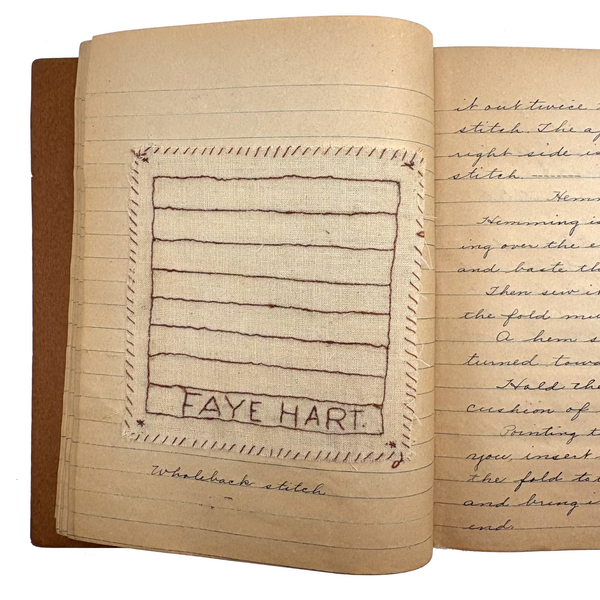 FAYE HART.
Wholeback stitch
it out twice
stitch. The
right side is
stitch.
Hem
Hemming is
ing over the
and baste th
Then sew in
the fold mu
A hem s
turned towa
Hold the
cushion of
Pointing t
you, insert
the fold to
and bringi
end.